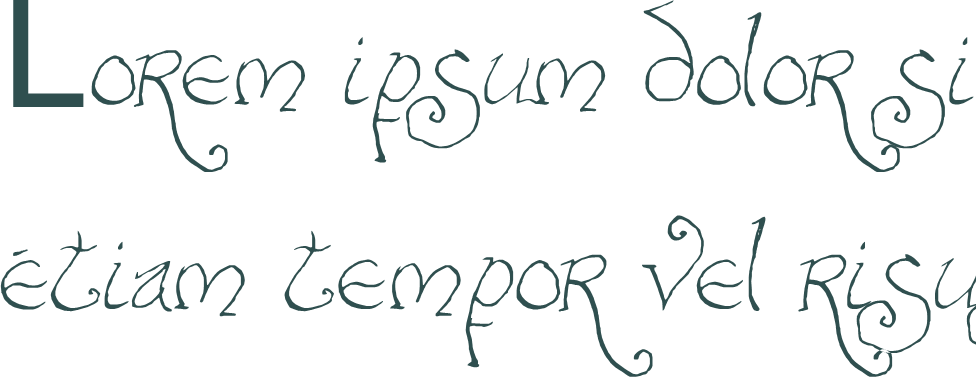 Lorem ipsum dolor si
etiam tempor vel risu